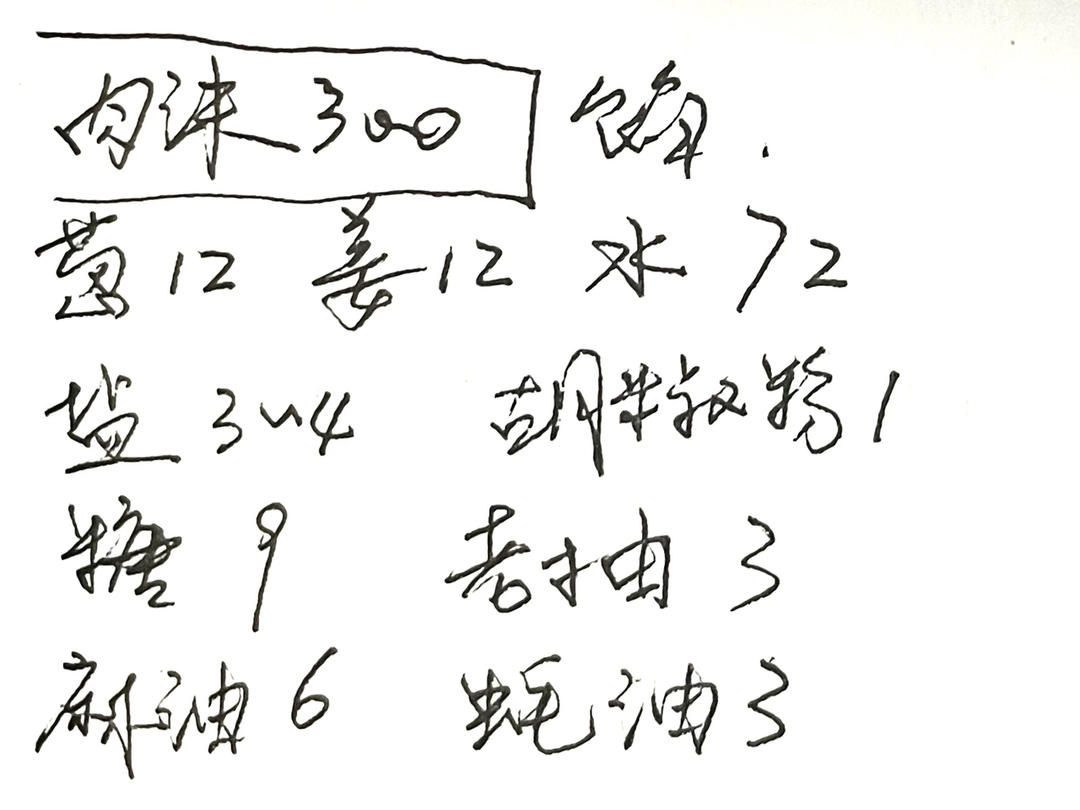 肉沫300 馅.
葱12 姜12 水72
盐3~4 胡椒粉1
糖9 老抽3
麻油6 蚝油3